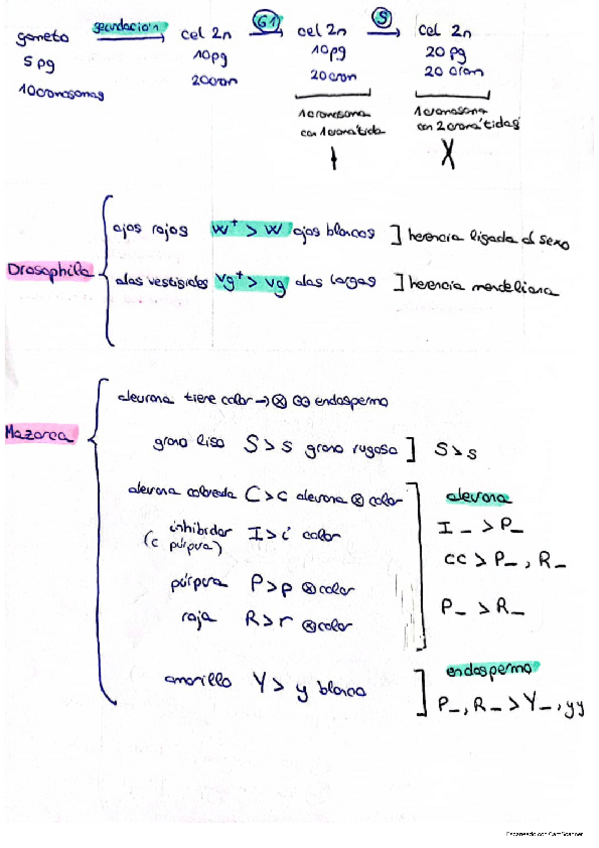 gameto fecundación cel 2n G1 cel 2n S cel 2n
5 pg 10pg 10pg 20 pg
10 cromosomas 20crom 20crom 20 crom
1 cromosoma con 1 cromátida
1 cromosoma con 2 cromátidas
Drosophila
ojos rojos w⁺ > w ojos blancos ] herencia ligada al sexo
alas vestigiales vg⁺ > vg alas largas ] herencia mendeliana
Mazorca
aleurona tiene color → ⊗ endospermo
grano liso S > s grano rugoso ] S > s
aleurona coloreada C > c aleurona ⊗ color
inhibidor I > i color
(c púrpura)
púrpura P > p ⊗ color
roja R > r ⊗ color
aleurona
I _ > P _
cc > P _ , R _
P _ > R _
amarillo Y > y blanco
endospermo
P _ , R _ > Y _ , yy
Escaneado con CamScanner